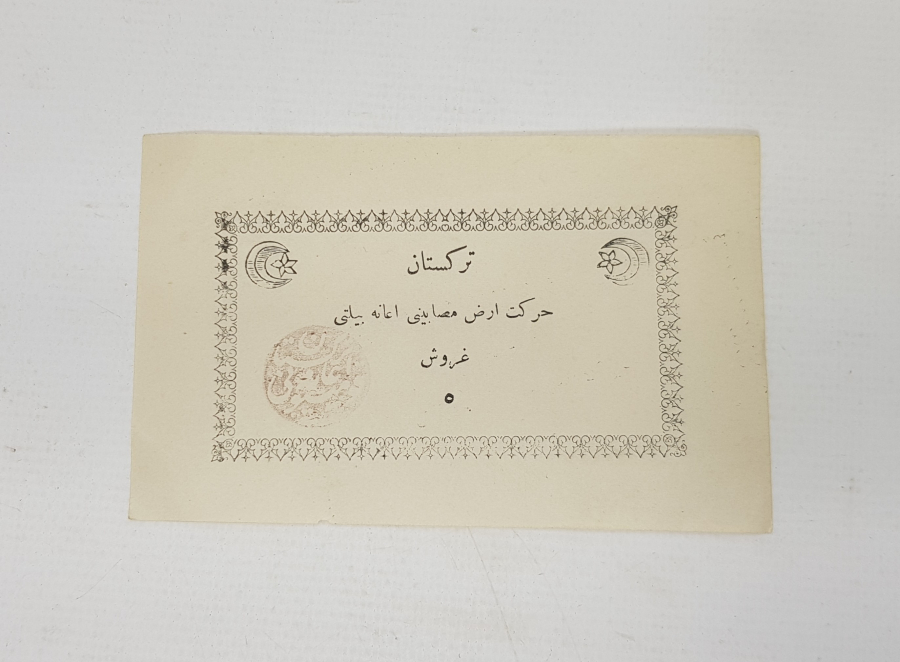 تركستان
حركت ارض مصابینی اعانه بیلتی
غروش
٥